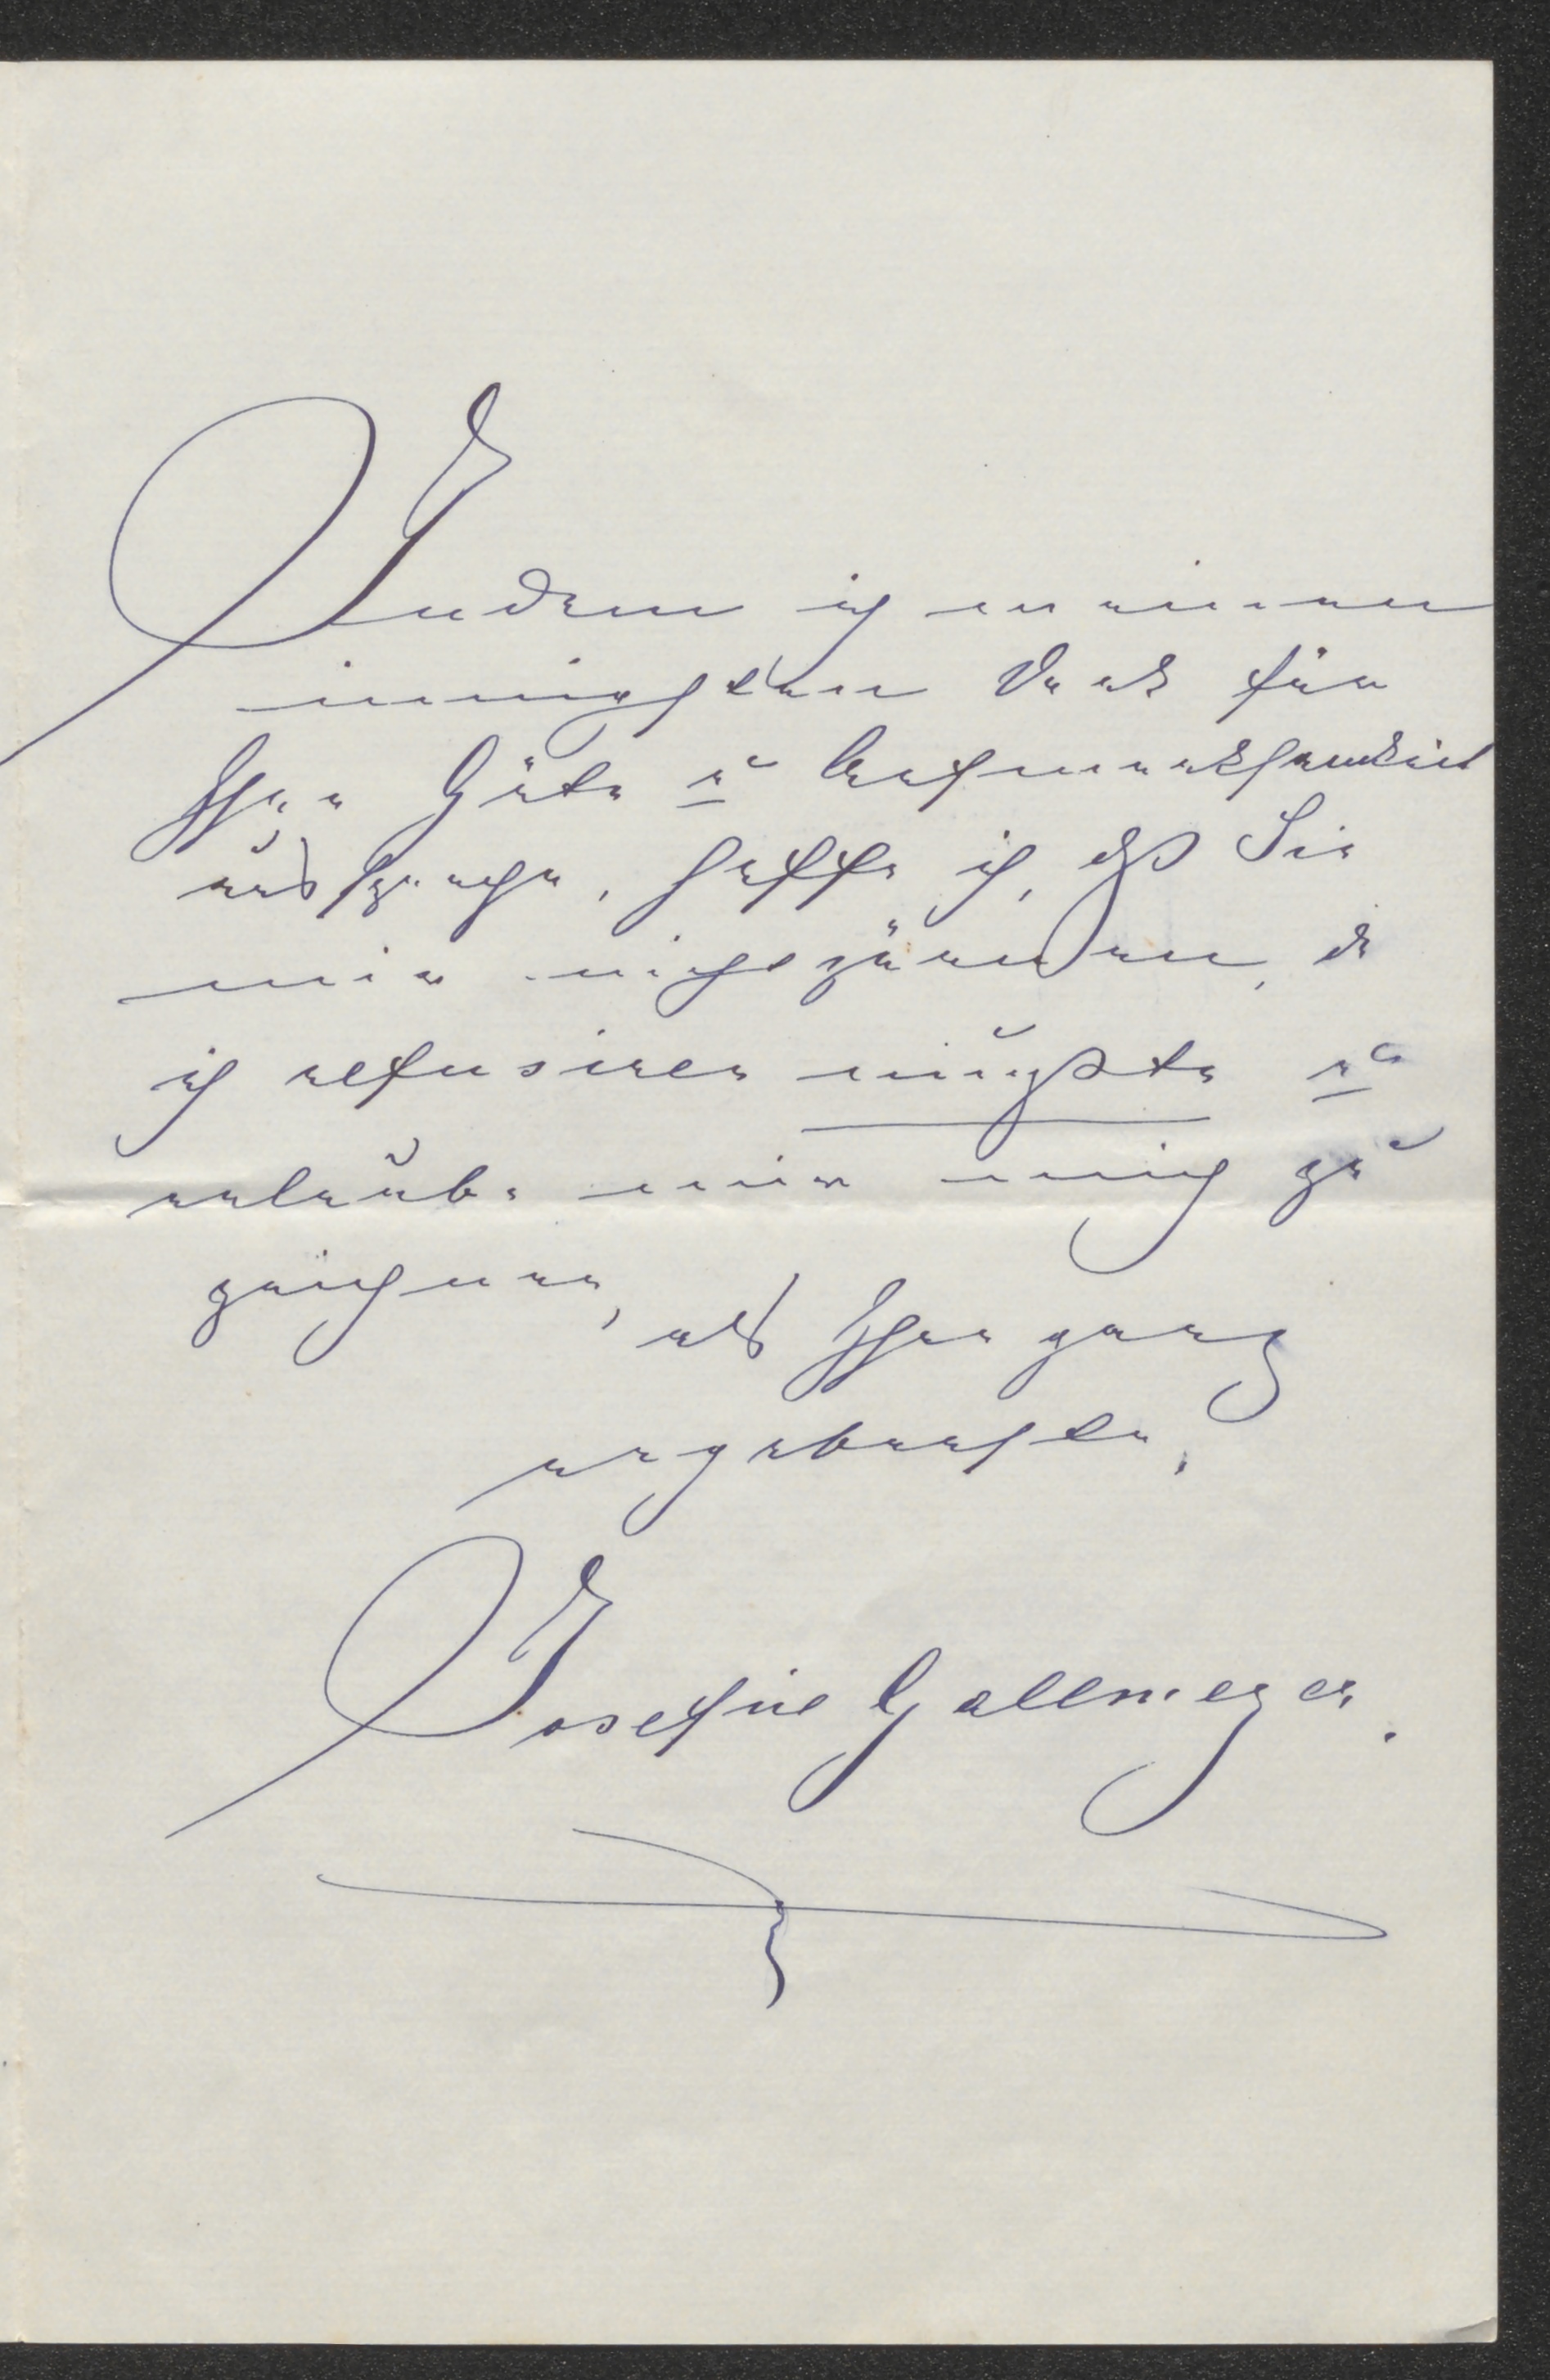 Indem ich meinen
innigsten Dank für
Ihre Güte u Aufmerksamkeit
ausspreche, hoffe ich, daß Sie
mir nicht zürnen, da
ich refusiren mußte u
erlaube mir mich zu
zeichnen, als Ihre ganz
ergebenste,
Josefine Gallmeyer.